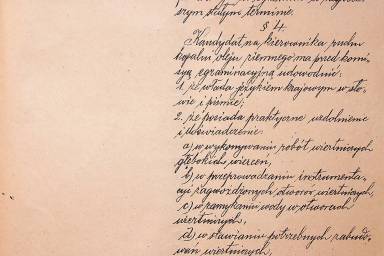 szym stałym terminie.
§ 4.
Kandydat na kierownika ruchu
kopalni oleju ziemnego ma przed komi-
syą egzaminacyjną udowodnić:
1. że włada językiem krajowym w sło-
wie i piśmie;
2. że posiada praktyczne uzdolnienie
i doświadczenie:
a) w wykonywaniu robót wiertniczych
głębokich wierceń,
b) w przeprowadzaniu instrumenta-
cyi zagwożdżonych otworów wiertniczych,
c) w zamykaniu wody w otworach
wiertniczych,
d) w stawianiu potrzebnych zabudo-
wań wiertniczych,